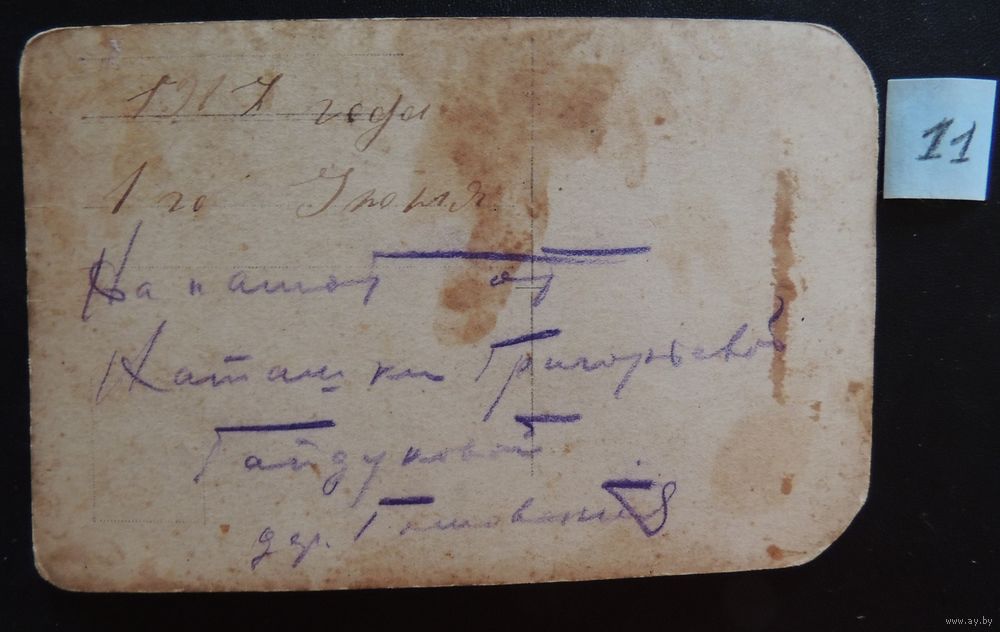 1917 года
1 го Июня
На память от
Наташки Григорьевой
Гайдуковой
дер.
11
www.ay.by